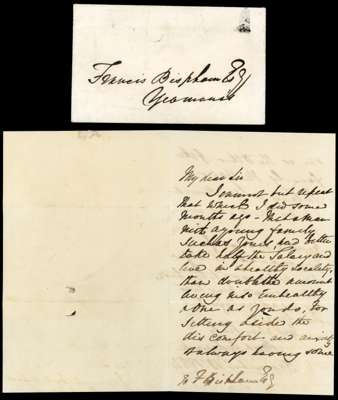 Francis Bispham Esq
Yeomanst
My dear Sir
I cannot but repeat
that which I did some
months ago - that a man
with a young family
such as yours, had better
take half the Salary and
live in a healthy locality,
than double the amount
living in so unhealthy
a one as yours, for
Setting aside the
discomfort and
always having some
F Bispham Esq